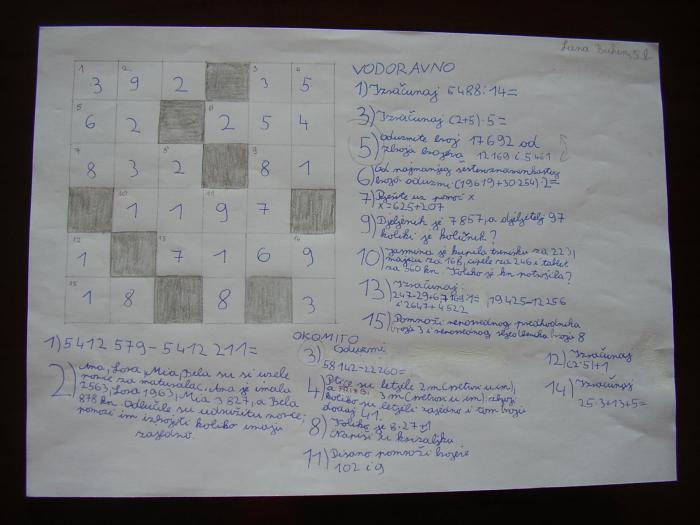 Lana
VODORAVNO
1) Izračunaj 5488:14=
3) Izračunaj (2+5)·5=
5) Oduzmite broj 17692 od
zbroja brojeva 12169 i 5461
6) Od najmanjeg šesteroznamenkastog
broja oduzmi: (19619+30254)·2=
7) Riješite uz pomoć x
x=625+207
9) Djeljenik je 7857, a djelitelj 97
koliki je količnik?
10) Jasmina je kupila trenirku za
majicu za 168, cipele za 246 i tablet
za 560 kn. Koliko je kn potrošila?
13) Izračunaj:
19425-12256
i 2647+4522
15) Pomnoži neposrednog predhodnika
broja 3 i neposrednog sljedbenika broja 8
1 3 2 9 2 3 3 4 5
5 6 2 6 2 5 4
7 8 3 8 2 9 8 1
10 1 1 11 9 7
12 1 13 7 1 6 14 9
15 1 8 8 3
1) 5412 579-5412 211=
2) Ana, Lora, Mia, Bela su si uzele
novce za maturalac. Ana je imala
2563, Lora 1963, Mia 3 827, a Bela
878 kn. Odlučile su udružiti novce,
pomozi im izbrojiti koliko imaju
zajedno.
OKOMITO
3) Oduzmi
58142-22260=
4) Ptice su letjele 2m (netom u m),
a 3m (netom u m): zbroji
koliko su letjeli zajedno i tom broju
dodaj 41.
8) Koliko je 8·27+1
Napiši uz kvržaljku
11) Pisano pomnoži brojeve
102 i 9
12) Izračunaj
(2·5)+1
14) Izračunaj
25·3+13+5=